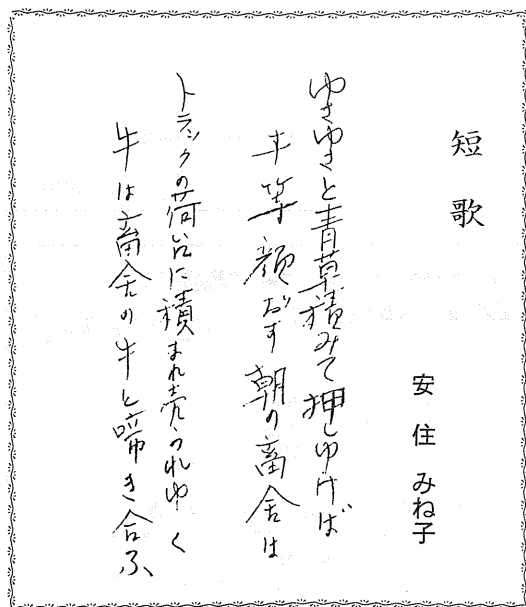 短歌
安住 みね子
ゆさゆさと青草積みて押しゆけば
牛等顔だす朝の畜舎は
トラックの荷台に積まれ売られゆく
牛は畜舎の牛と啼き合ふ